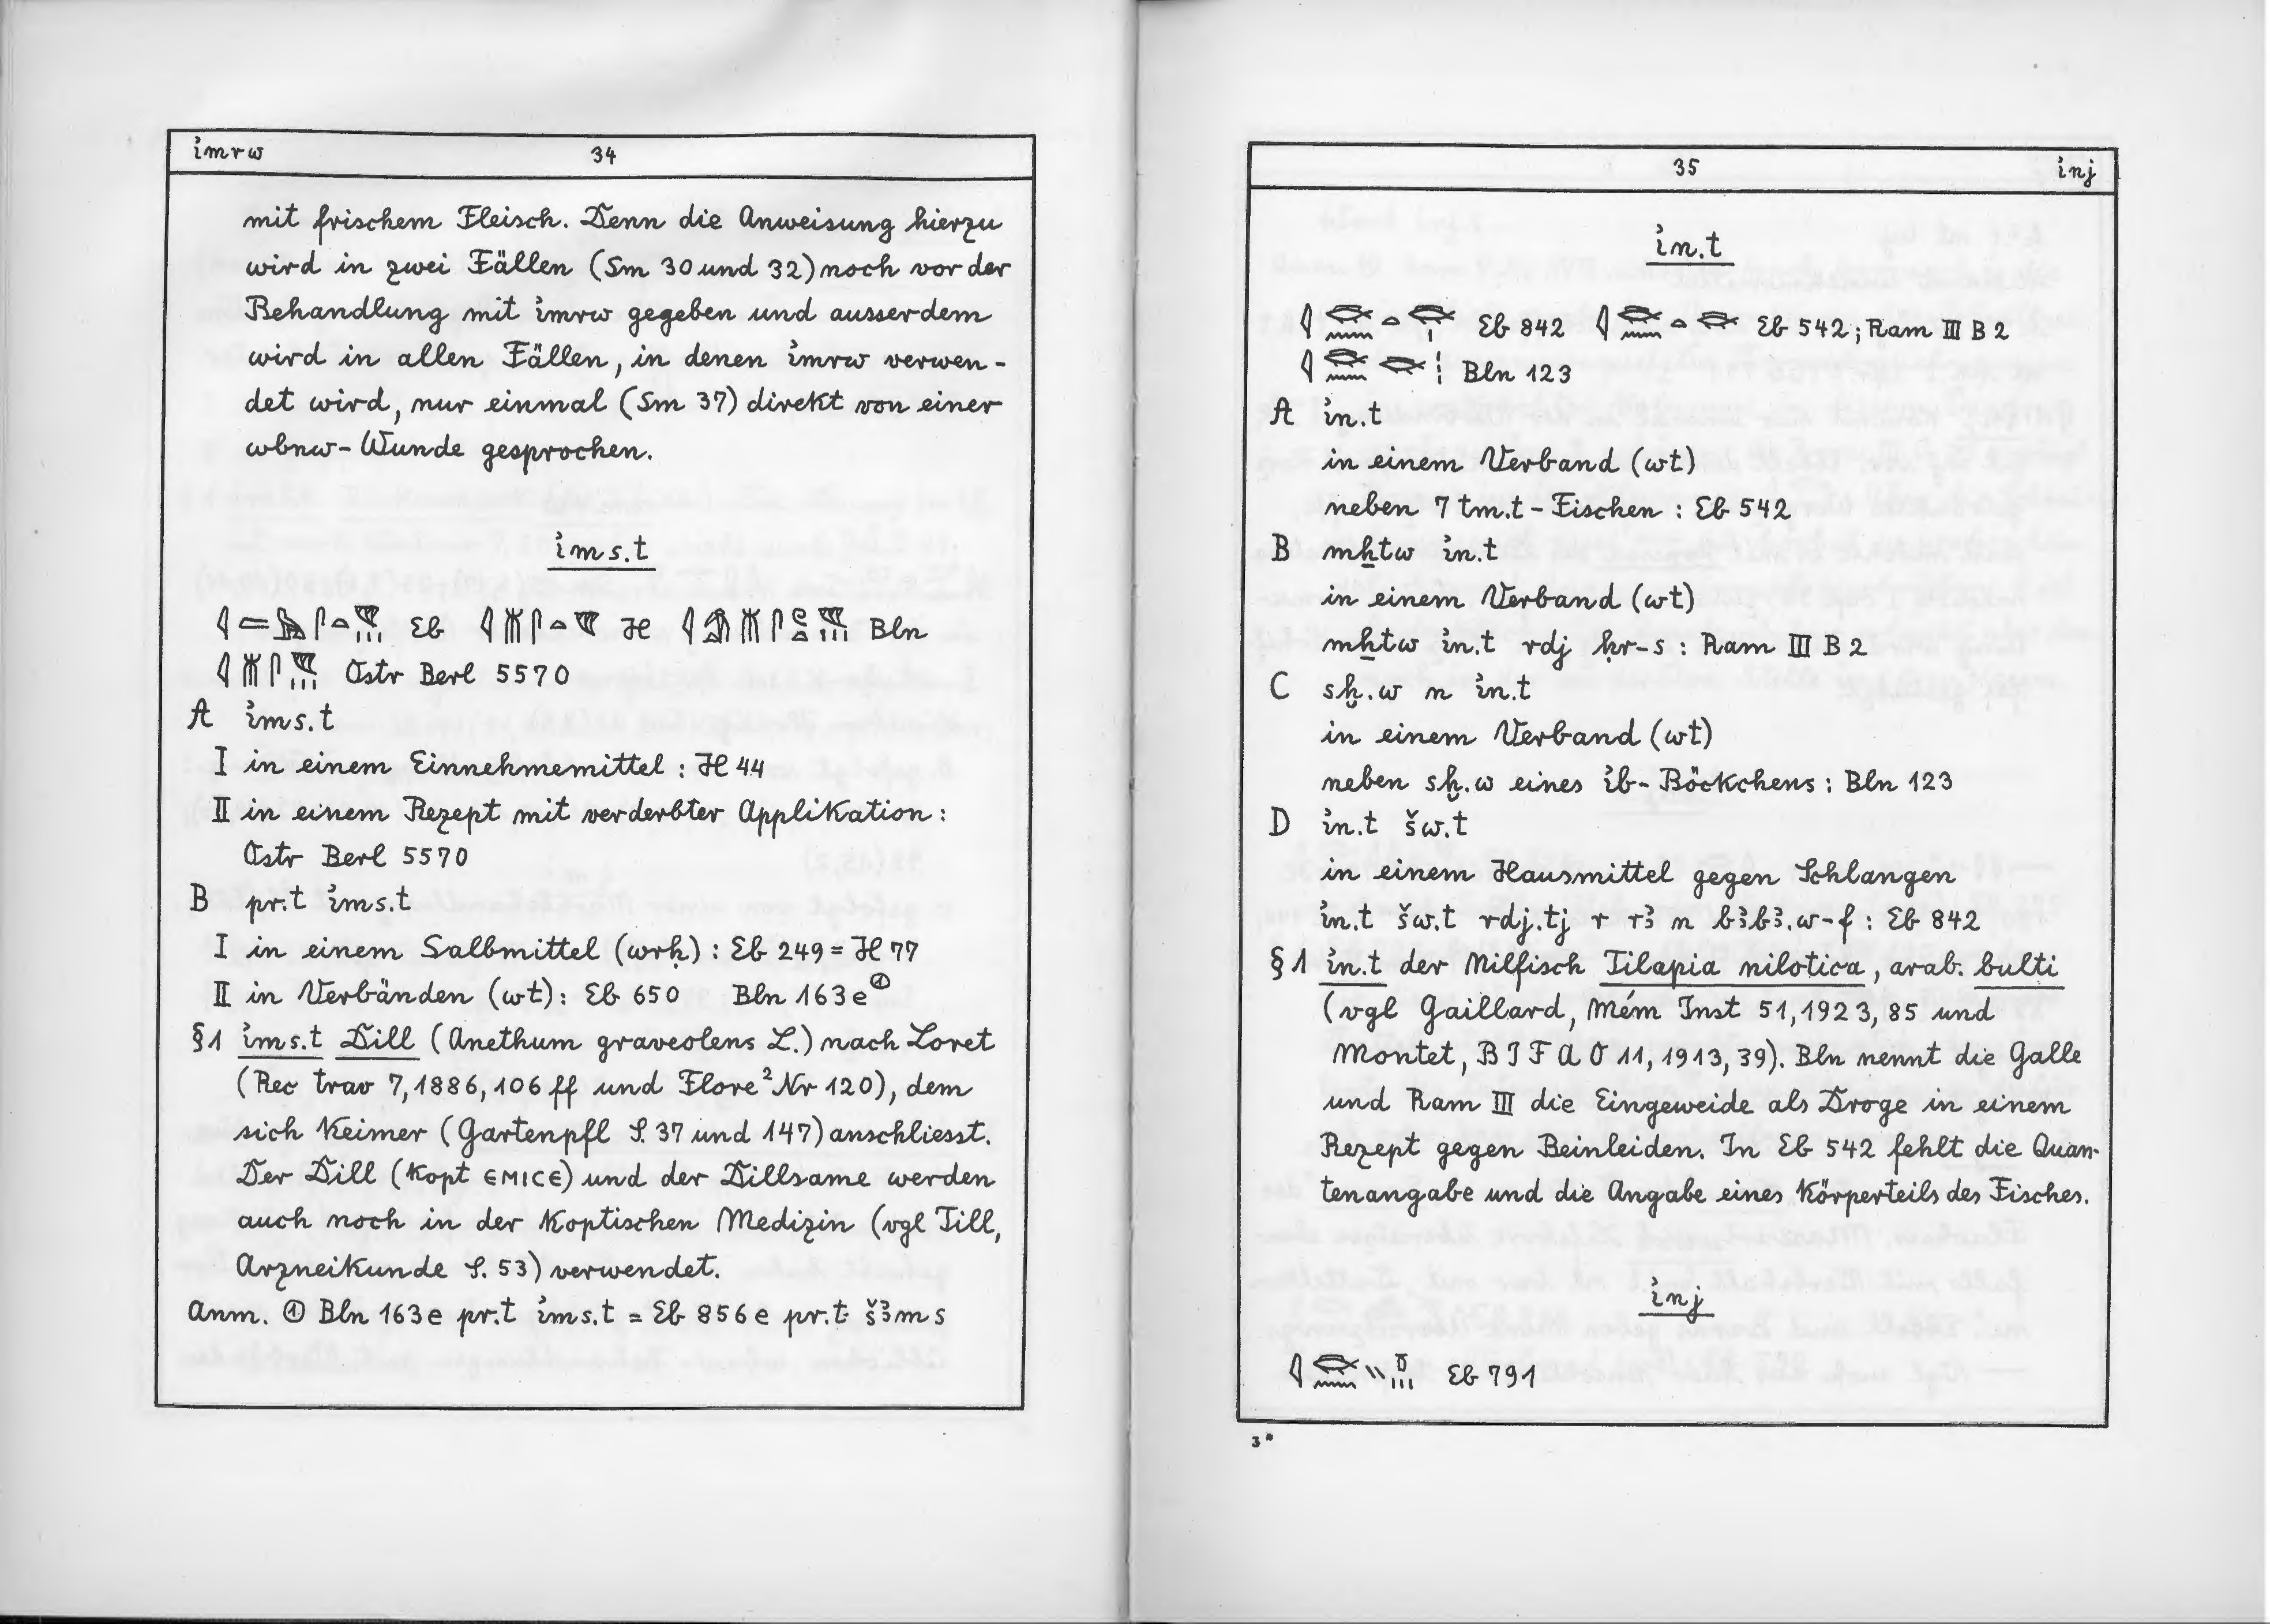 i҆mrw 34
mit frischem Fleisch. Denn die Anweisung hierzu
wird in zwei Fällen (Sm 30 und 32) noch vor der
Behandlung mit i҆mrw gegeben und ausserdem
wird in allen Fällen, in denen i҆mrw verwen-
det wird, nur einmal (Sm 37) direkt von einer
wbnw-Wunde gesprochen.
i҆ms.t
Eb H Bln
Ostr Berl 5570
A i҆ms.t
I in einem Einnehmemittel : H 44
II in einem Rezept mit verderbter Applikation :
Ostr Berl 5570
B pr.t i҆ms.t
I in einem Salbmittel (wrḥ) : Eb 249 = H 77
II in Verbänden (wt) : Eb 650 Bln 163e ①
§1 i҆ms.t Dill (Anethum graveolens L.) nach Loret
(Rec trav 7, 1886, 106 ff und Flore² Nr 120), dem
sich Keimer (Gartenpfl S. 37 und 147) anschliesst.
Der Dill (kopt ⲉⲙⲓⲥⲉ) und der Dillsame werden
auch noch in der koptischen Medizin (vgl Till,
Arzneikunde S. 53) verwendet.
Anm. ① Bln 163e pr.t i҆ms.t = Eb 856e pr.t šꜣms
35 i҆nj
i҆n.t
Eb 842 Eb 542 ; Ram III B 2
Bln 123
A i҆n.t
in einem Verband (wt)
neben 7 tm.t-Fischen : Eb 542
B mẖtw i҆n.t
in einem Verband (wt)
mẖtw i҆n.t rdj ḥr-s : Ram III B 2
C sḫ.w n i҆n.t
in einem Verband (wt)
neben sḫ.w eines i҆b-Böckchens : Bln 123
D i҆n.t šw.t
in einem Hausmittel gegen Schlangen
i҆n.t šw.t rdj.tj r rꜣ n bꜣbꜣ.w-f : Eb 842
§1 i҆n.t der Milfisch Tilapia nilotica, arab. bulti
(vgl Gaillard, Mém Inst 51, 1923, 85 und
Montet, BIFAO 11, 1913, 39). Bln nennt die Galle
und Ram III die Eingeweide als Droge in einem
Rezept gegen Beinleiden. In Eb 542 fehlt die Quan-
tenangabe und die Angabe eines Körperteils des Fisches.
i҆nj
Eb 791
3*